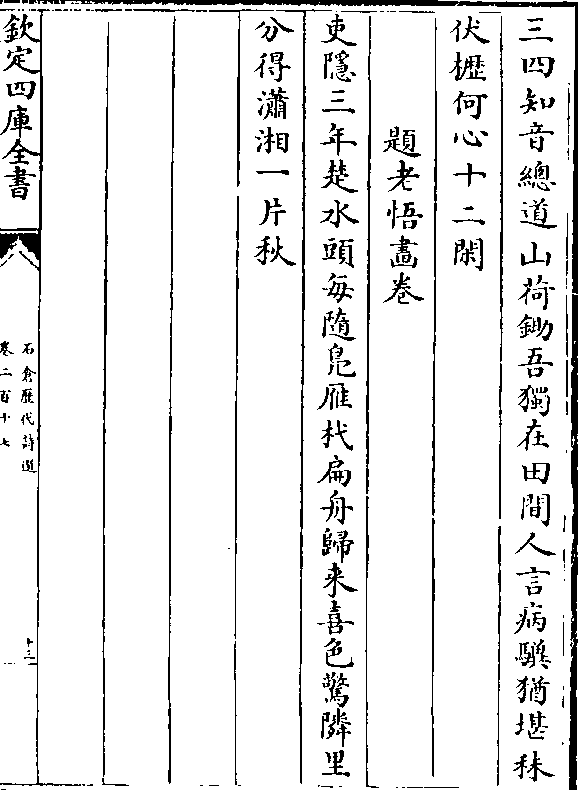 三四知音總道山荷鋤吾獨在田間人言病驥猶堪秣
伏櫪何心十二閑
題老悟畫卷
吏隱三年楚水頭每隨鳬雁杙扁舟歸来喜色驚隣里
分得瀟湘一片秋
欽定四庫全書
石倉歷代詩選
卷二百十七
十三